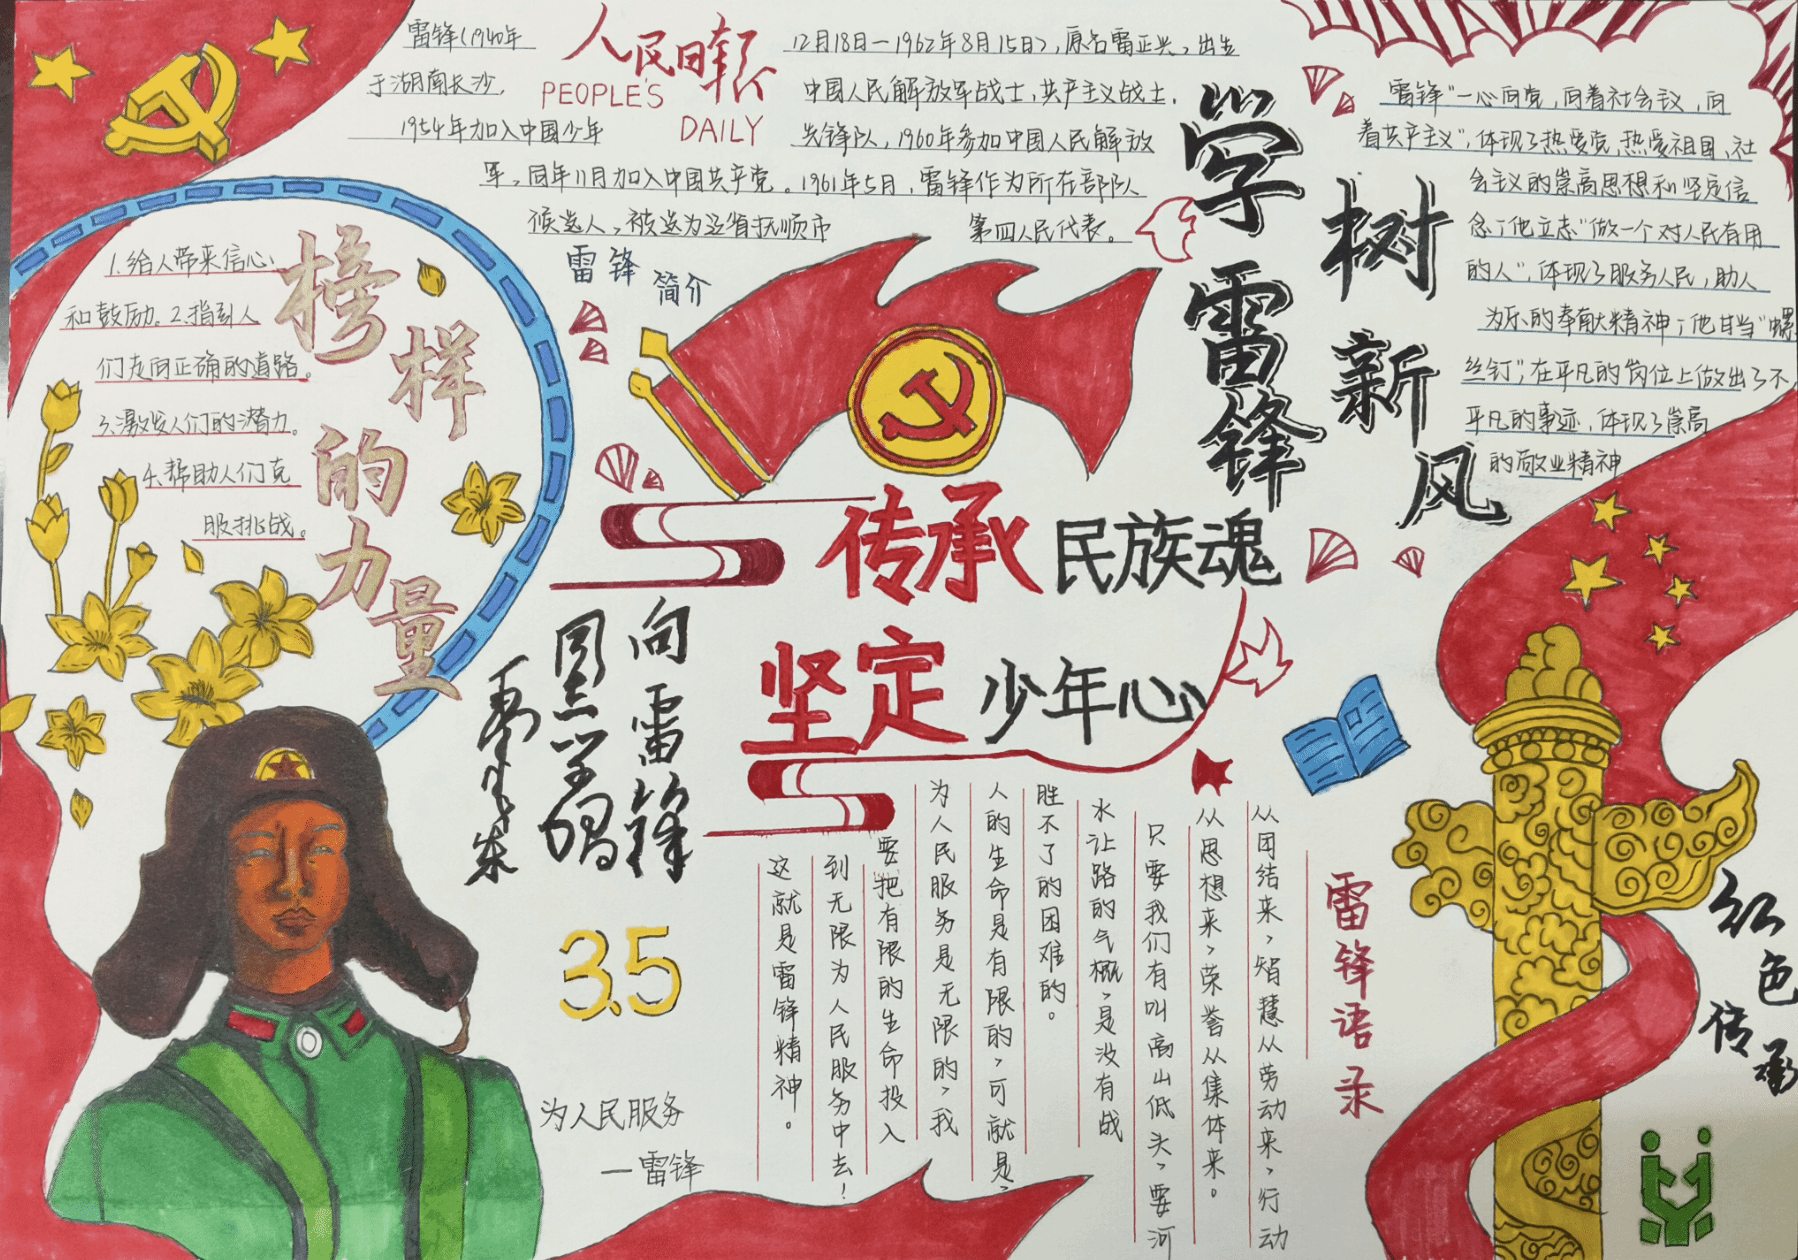 人民日报
PEOPLE'S
DAILY
雷锋(1940年12月18日—1962年8月15日),原名雷正兴,出生
于湖南长沙,中国人民解放军战士,共产主义战士.
1954年加入中国少年先锋队,1960年参加中国人民解放
军,同年11月加入中国共产党。1961年5月,雷锋作为所在部队
候选人,被选为辽省抚顺市第四人民代表。
雷锋
简介
榜样的力量
1.给人带来信心
和鼓励。2.指引人
们走向正确的道路。
3.激发人们的潜力。
4.帮助人们克
服挑战。
学雷锋
树新风
雷锋"一心向党,向着社会议,向
着共产主义",体现了热爱党,热爱祖国,社
会主义的崇高思想和坚定信
念;他立志"做一个对人民有用
的人",体现了服务人民,助人
为乐的奉献精神;他甘当"螺
丝钉",在平凡的岗位上做出了不
平凡的事迹,体现了崇高
的敬业精神
传承民族魂
坚定少年心
向雷锋
同志学习
毛泽东
3.5
为人民服务
—雷锋
雷锋语录
从团结来,智慧从劳动来,行动
从思想来,荣誉从集体来。
只要我们有叫高山低头,要河
水让路的气概,是没有战
胜不了的困难的。
人的生命是有限的,可就是,
为人民服务是无限的,我
要把有限的生命投入
到无限为人民服务中去!
这就是雷锋精神。
红色
传承